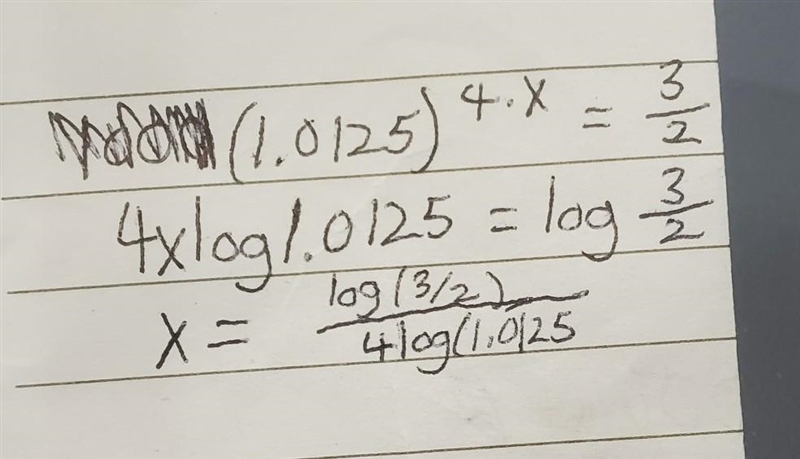 (1.0125)^4.x = 3/2
4xlog1.0125 = log 3/2
x = log(3/2) / 4log(1.0125